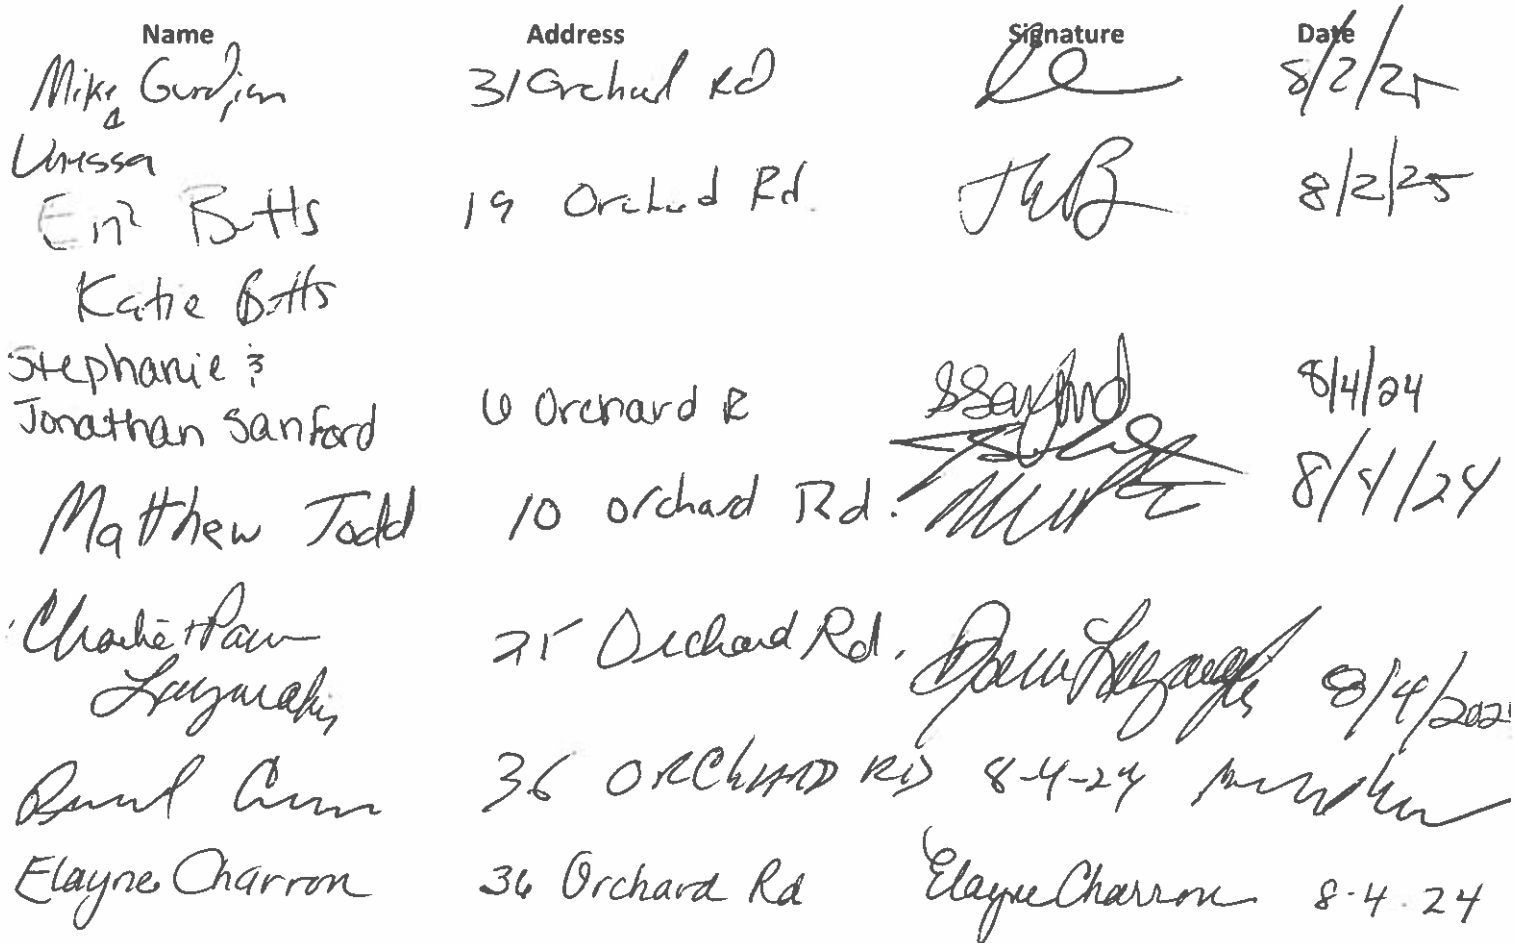 Name Address Signature Date
Mike Gurdjian 31 Orchard RD 8/2/25
&
Eric Butts 19 Orchard Rd. 8/2/25
Katie Butts
Stephanie &
Jonathan Sanford 6 Orchard R SSanford 8/4/24
Matthew Todd 10 orchard Rd. 8/4/24
Charlie + Pam 25 Orchard Rd. 8/4/202
36 ORCHARD RD 8-4-24
Elayne Charron 36 Orchard Rd Elayne Charron 8-4-24